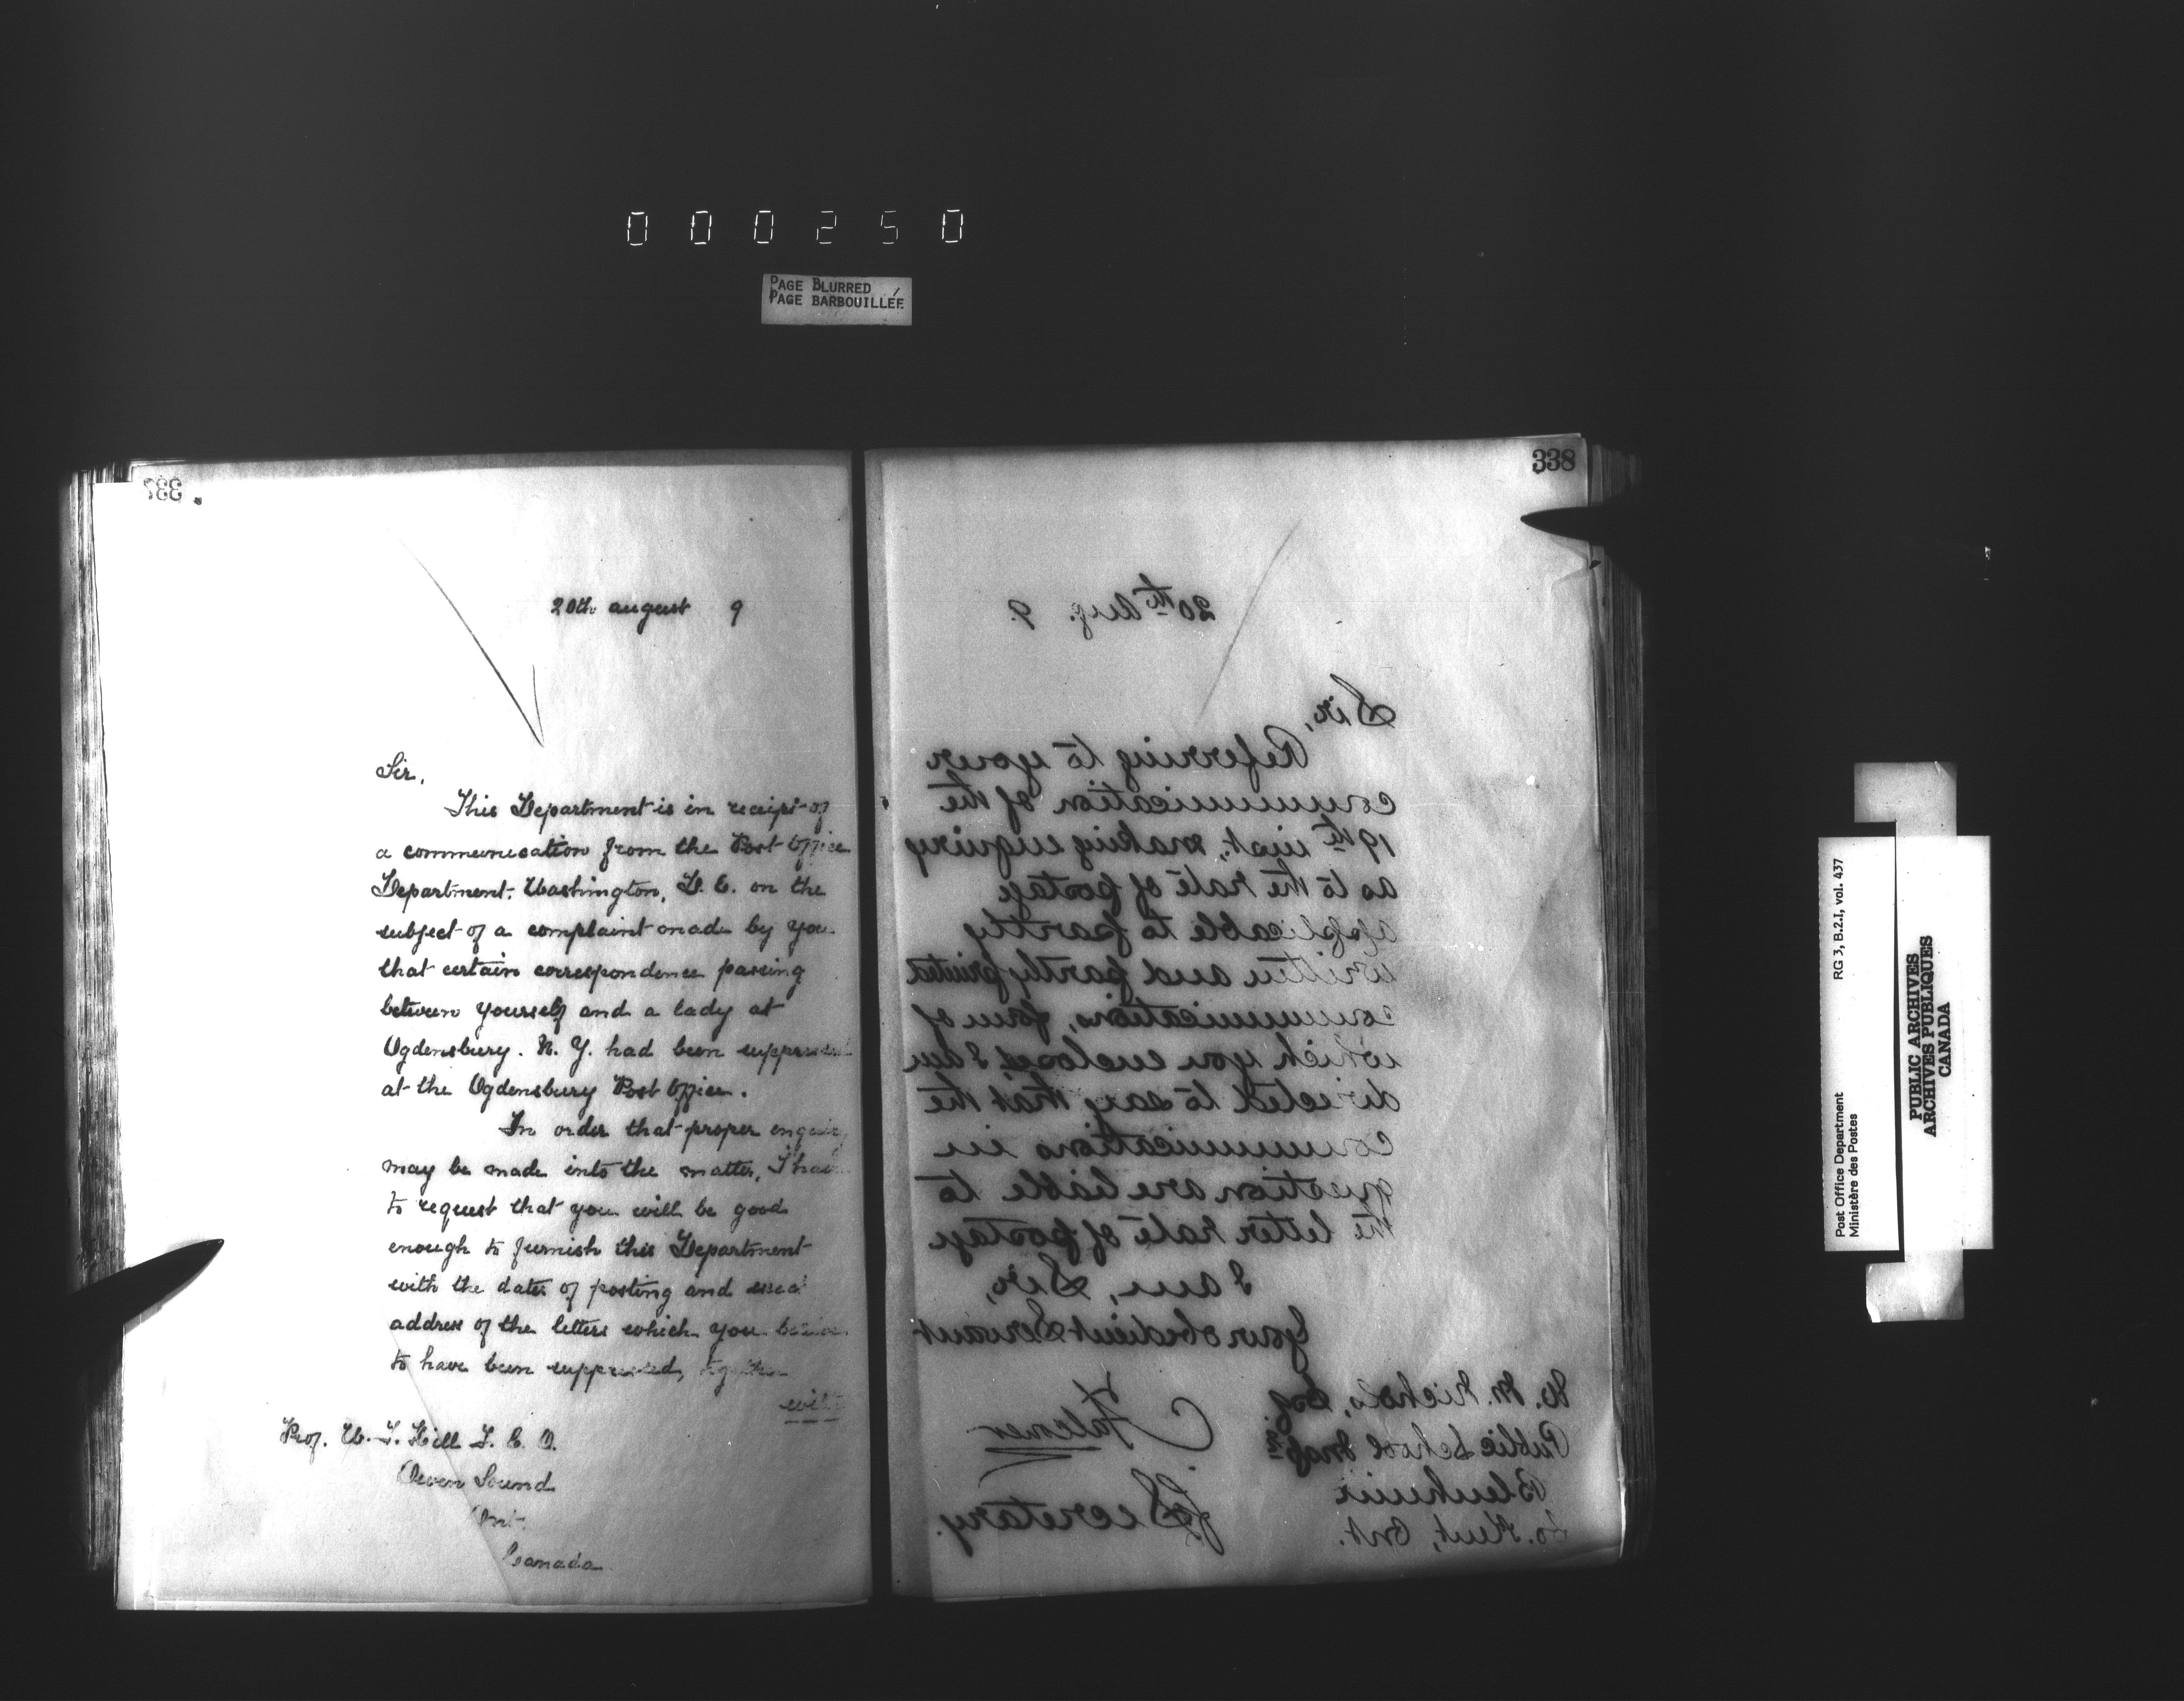 000250
PAGE BLURRED
PAGE BARBOUILLÉE
337
20th august 9
Sir,
This Department is in receipt of
a communication from the Post Office
Department, Washington, D. C. on the
subject of a complaint made by you
that certain correspondence passing
between yourself and a lady at
Ogdensburg. N. Y. had been suppressed
at the Ogdensburg Post Office.
In order that proper enquiry
may be made into the matter, I have
to request that you will be good
enough to furnish this Department
with the dates of posting and exact
address of the letters which you believe
to have been suppressed, together
with
Prof. W. T. Hill
Owen Sound
Ont.
Canada
338
20th Aug. 9.
Sir,
Referring to your
communication of the
19th inst., making enquiry
as to the rate of postage
applicable to partly
written and partly printed
communications, form of
which you enclosed, I am
directed to say that the
communications in
question are liable to
the letter rate of postage
I am, Sir,
Your obedient Servant
Secretary.
W. M. Nichols, Esq.
Public School Inspr
Blenheim
Co. Kent, Ont.
Post Office Department
Ministère des Postes
RG 3, B.2.I, vol. 437
PUBLIC ARCHIVES
ARCHIVES PUBLIQUES
CANADA